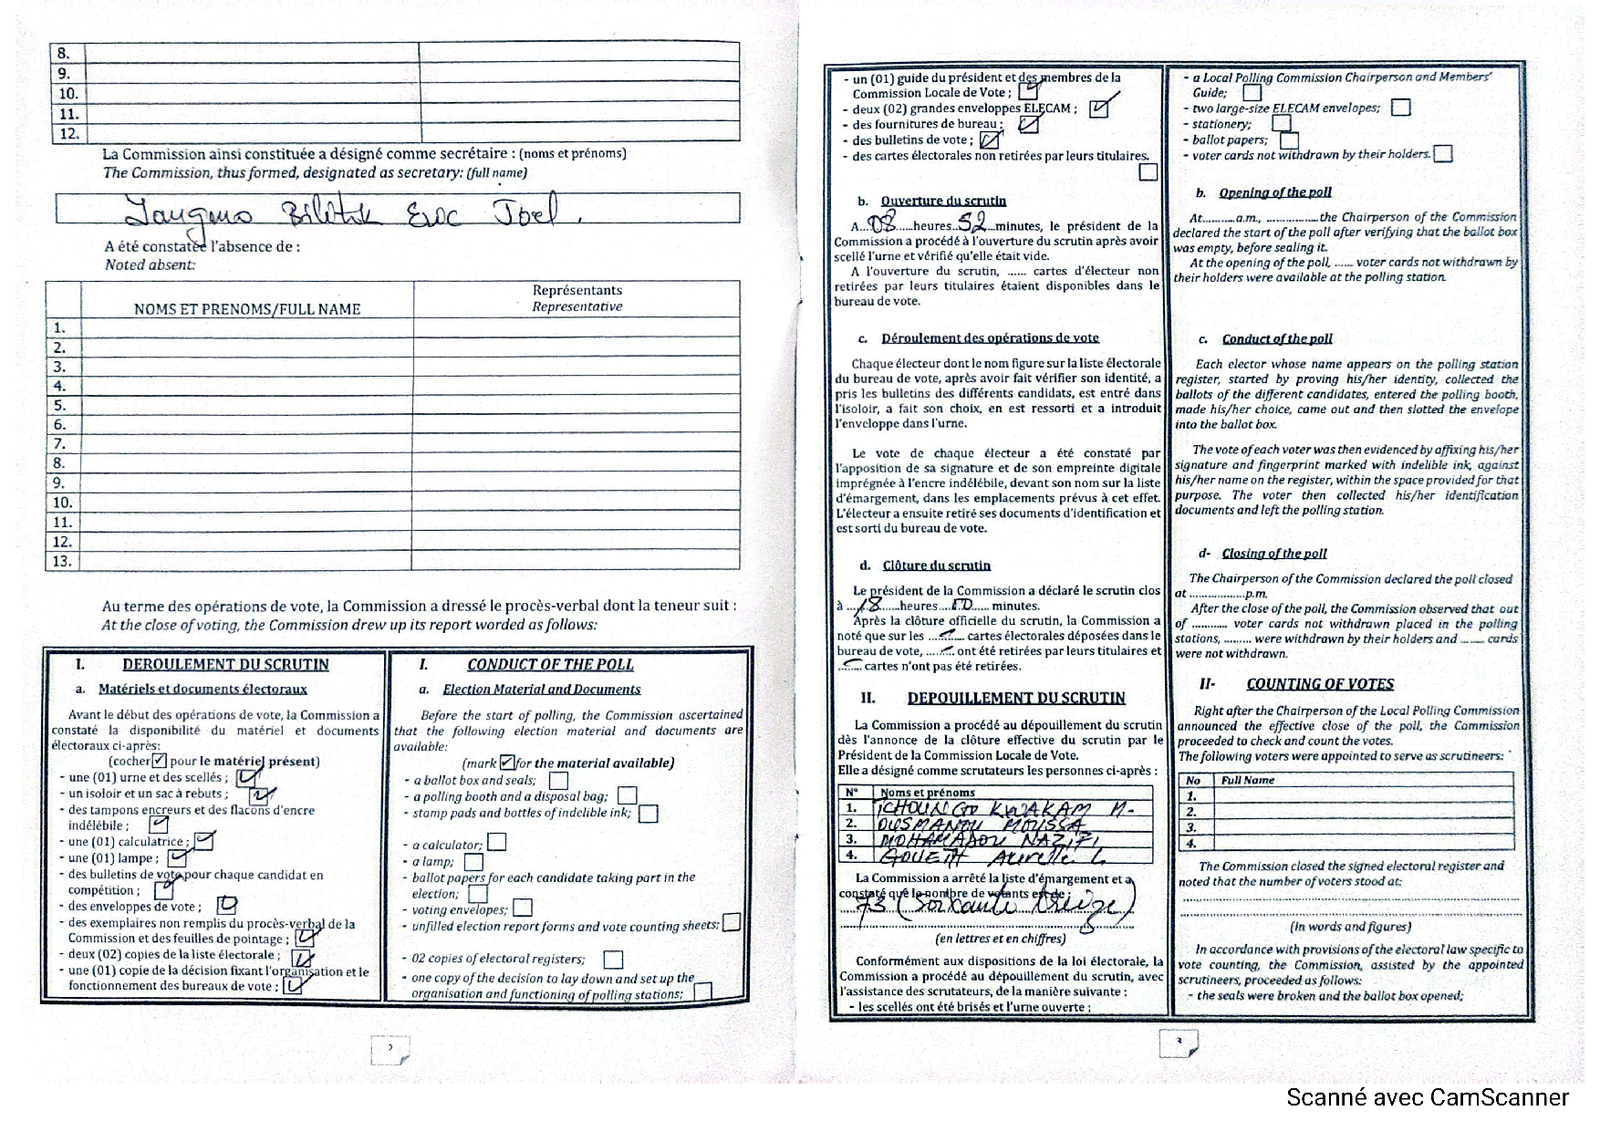 8.
9.
10.
11.
12.
La Commission ainsi constituée a désigné comme secrétaire : (noms et prénoms)
The Commission, thus formed, designated as secretary: (full name)
Joel.
A été constatée l'absence de :
Noted absent:
NOMS ET PRENOMS/FULL NAME
Représentants
Representative
1.
2.
3.
4.
5.
6.
7.
8.
9.
10.
11.
12.
13.
Au terme des opérations de vote, la Commission a dressé le procès-verbal dont la teneur suit :
At the close of voting, the Commission drew up its report worded as follows:
I. DEROULEMENT DU SCRUTIN
a. Matériels et documents électoraux
Avant le début des opérations de vote, la Commission a
constaté la disponibilité du matériel et documents
électoraux ci-après:
(cocher ☑ pour le matériel présent)
- une (01) urne et des scellés ; ☑
- un isoloir et un sac à rebuts ; ☑
- des tampons encreurs et des flacons d'encre
indélébile ; ☑
- une (01) calculatrice ; ☑
- une (01) lampe ; ☑
- des bulletins de vote pour chaque candidat en
compétition ; ☑
- des enveloppes de vote ; ☑
- des exemplaires non remplis du procès-verbal de la
Commission et des feuilles de pointage ; ☑
- deux (02) copies de la liste électorale ; ☑
- une (01) copie de la décision fixant l'organisation et le
fonctionnement des bureaux de vote ; ☑
I. CONDUCT OF THE POLL
a. Election Material and Documents
Before the start of polling, the Commission ascertained
that the following election material and documents are
available:
(mark ☑ for the material available)
- a ballot box and seals; ☐
- a polling booth and a disposal bag; ☐
- stamp pads and bottles of indelible ink; ☐
- a calculator; ☐
- a lamp; ☐
- ballot papers for each candidate taking part in the
election; ☐
- voting envelopes; ☐
- unfilled election report forms and vote counting sheets; ☐
- 02 copies of electoral registers; ☐
- one copy of the decision to lay down and set up the
organisation and functioning of polling stations; ☐
2
- un (01) guide du président et des membres de la
Commission Locale de Vote ; ☑
- deux (02) grandes enveloppes ELECAM ; ☑
- des fournitures de bureau ; ☑
- des bulletins de vote ; ☑
- des cartes électorales non retirées par leurs titulaires.
☐
b. Ouverture du scrutin
A...08...heures...52...minutes, le président de la
Commission a procédé à l'ouverture du scrutin après avoir
scellé l'urne et vérifié qu'elle était vide.
A l'ouverture du scrutin, ...... cartes d'électeur non
retirées par leurs titulaires étaient disponibles dans le
bureau de vote.
c. Déroulement des opérations de vote
Chaque électeur dont le nom figure sur la liste électorale
du bureau de vote, après avoir fait vérifier son identité, a
pris les bulletins des différents candidats, est entré dans
l'isoloir, a fait son choix, en est ressorti et a introduit
l'enveloppe dans l'urne.
Le vote de chaque électeur a été constaté par
l'apposition de sa signature et de son empreinte digitale
imprégnée à l'encre indélébile, devant son nom sur la liste
d'émargement, dans les emplacements prévus à cet effet.
L'électeur a ensuite retiré ses documents d'identification et
est sorti du bureau de vote.
d. Clôture du scrutin
Le président de la Commission a déclaré le scrutin clos
à ...18...heures......... minutes.
Après la clôture officielle du scrutin, la Commission a
noté que sur les ......... cartes électorales déposées dans le
bureau de vote, ......... ont été retirées par leurs titulaires et
......... cartes n'ont pas été retirées.
II. DEPOUILLEMENT DU SCRUTIN
La Commission a procédé au dépouillement du scrutin
dès l'annonce de la clôture effective du scrutin par le
Président de la Commission Locale de Vote.
Elle a désigné comme scrutateurs les personnes ci-après :
N° Noms et prénoms
1. KWAKAM M-
2. OUSMANOU MOUSSA
3. MOHAMADOU NAZIFI
4. Aurelle
La Commission a arrêté la liste d'émargement et a
constaté que le nombre de votants est de :
73 (Soixante treize)
(en lettres et en chiffres)
Conformément aux dispositions de la loi électorale, la
Commission a procédé au dépouillement du scrutin, avec
l'assistance des scrutateurs, de la manière suivante :
- les scellés ont été brisés et l'urne ouverte ;
- a Local Polling Commission Chairperson and Members'
Guide; ☐
- two large-size ELECAM envelopes; ☐
- stationery; ☐
- ballot papers; ☐
- voter cards not withdrawn by their holders. ☐
b. Opening of the poll
At..........a.m., ...............the Chairperson of the Commission
declared the start of the poll after verifying that the ballot box
was empty, before sealing it.
At the opening of the poll, ...... voter cards not withdrawn by
their holders were available at the polling station.
c. Conduct of the poll
Each elector whose name appears on the polling station
register, started by proving his/her identity, collected the
ballots of the different candidates, entered the polling booth,
made his/her choice, came out and then slotted the envelope
into the ballot box.
The vote of each voter was then evidenced by affixing his/her
signature and fingerprint marked with indelible ink, against
his/her name on the register, within the space provided for that
purpose. The voter then collected his/her identification
documents and left the polling station.
d- Closing of the poll
The Chairperson of the Commission declared the poll closed
at ..................p.m.
After the close of the poll, the Commission observed that out
of ........... voter cards not withdrawn placed in the polling
stations, ......... were withdrawn by their holders and ........ cards
were not withdrawn.
II- COUNTING OF VOTES
Right after the Chairperson of the Local Polling Commission
announced the effective close of the poll, the Commission
proceeded to check and count the votes.
The following voters were appointed to serve as scrutineers:
No Full Name
1.
2.
3.
4.
The Commission closed the signed electoral register and
noted that the number of voters stood at:
(In words and figures)
In accordance with provisions of the electoral law specific to
vote counting, the Commission, assisted by the appointed
scrutineers, proceeded as follows:
- the seals were broken and the ballot box opened;
3
Scanné avec CamScanner